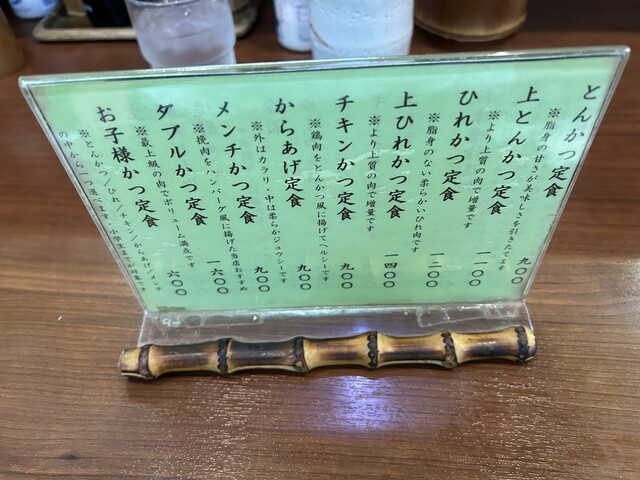 とんかつ定食 九〇〇
※脂身の甘さが美味しさを引きたてます
上とんかつ定食 一一〇〇
※より上質の肉で増量です
ひれかつ定食 一二〇〇
脂身のない柔らかいひれ肉です
上ひれかつ定食 一四〇〇
※より上質の肉で増量です
チキンかつ定食 九〇〇
※鶏肉をとんかつ風に揚げてヘルシーです
からあげ定食 九〇〇
※外はカラリ・中は柔らかジュウシーです
メンチかつ定食 九〇〇
※挽肉をハンバーグ風に揚げた当店おすすめ
ダブルかつ定食 一六〇〇
※最上級の肉でボリューム満点です
お子様かつ定食 六〇〇
※とんかつ/ひれ/チキン/からあげ/メンチ
の中から一つ選べます・小学生までが対象です